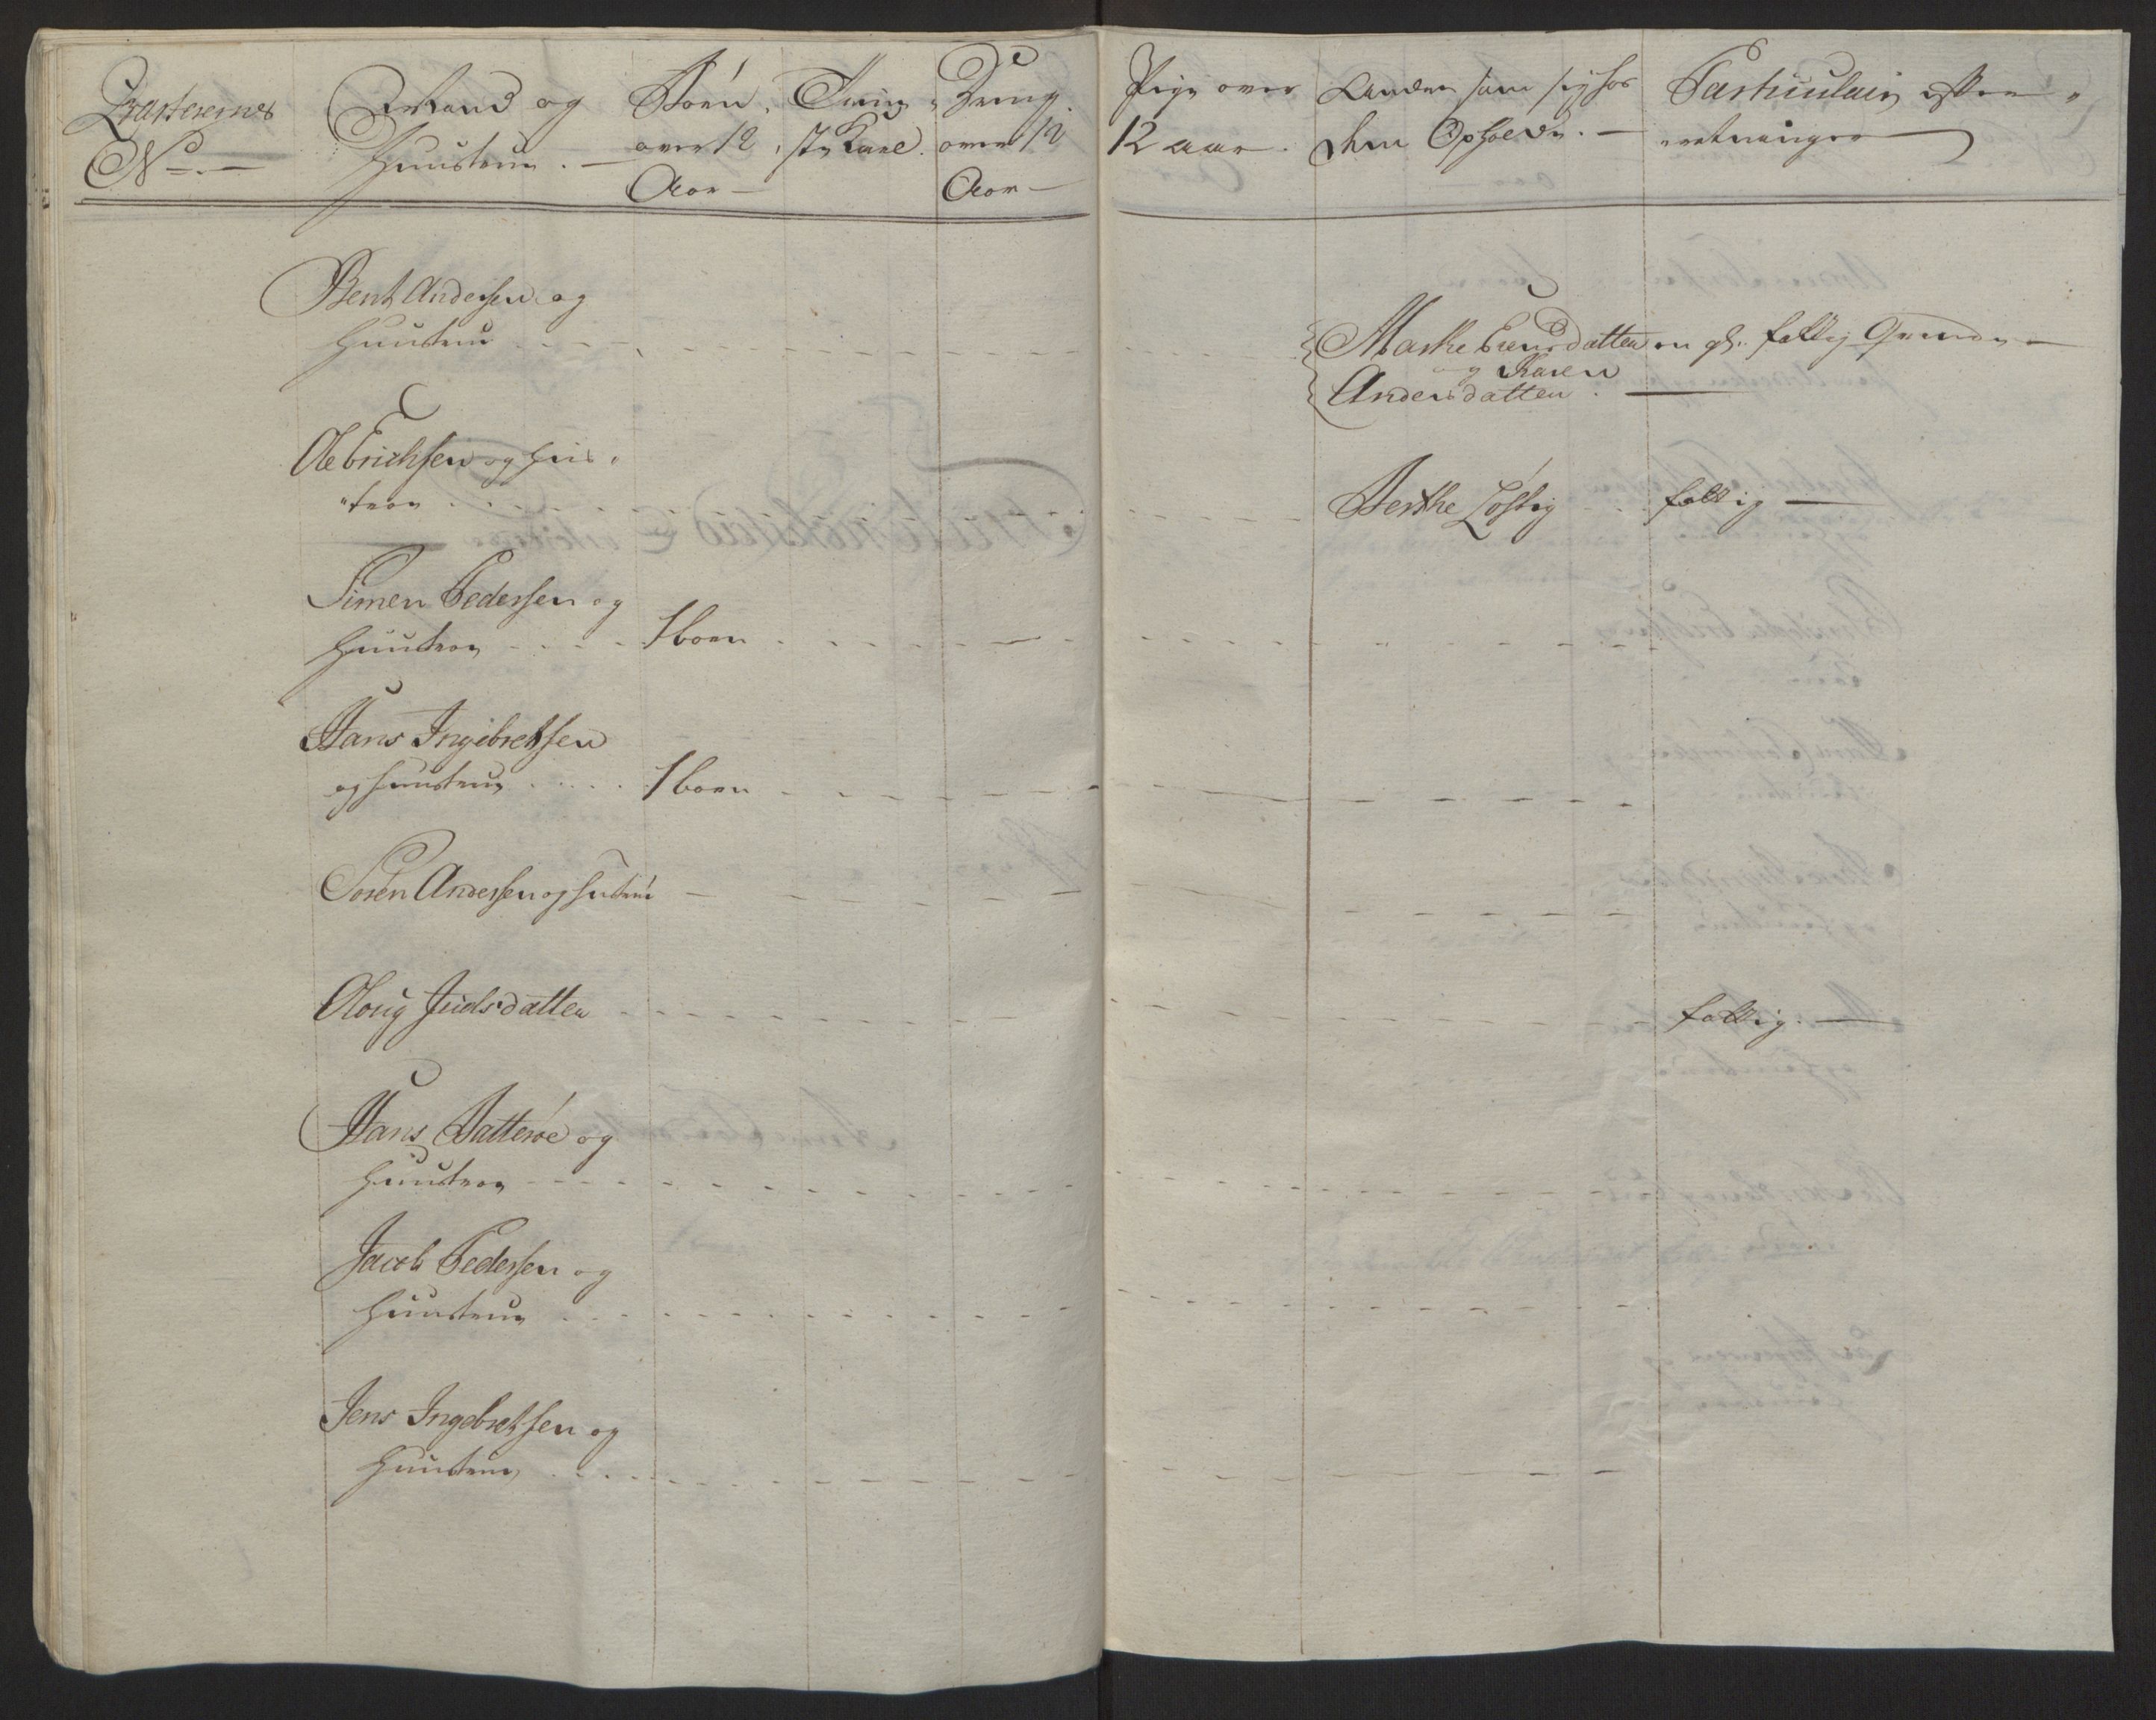 Qvarterernes No.
Mand og Huustrue.
Børn over 12 Aar
Tieniste Karl.
Dreng over 12 Aar
Pige over 12 aar.
Anden som sig hos dem Opholder.
Particulair efterretninger
Bent Andersen og
Huustrue
Marthe Evensdatter en gl. fattig Qvinde
og Karen
Andersdatter.
Ole Erichsen og Huus
true
Berthe Løftig fattig
Simen Pedersen og
Huustrue 1 barn
Hans Ingebretsen
og Huustrue 1 barn
Søren Andersen og Hustrue
Oloug Juelsdatter fattig.
Hans Batterøe og
Huustrue
Jacob Pedersen og
Huustrue
Jens Ingebretsen og
Huustrue